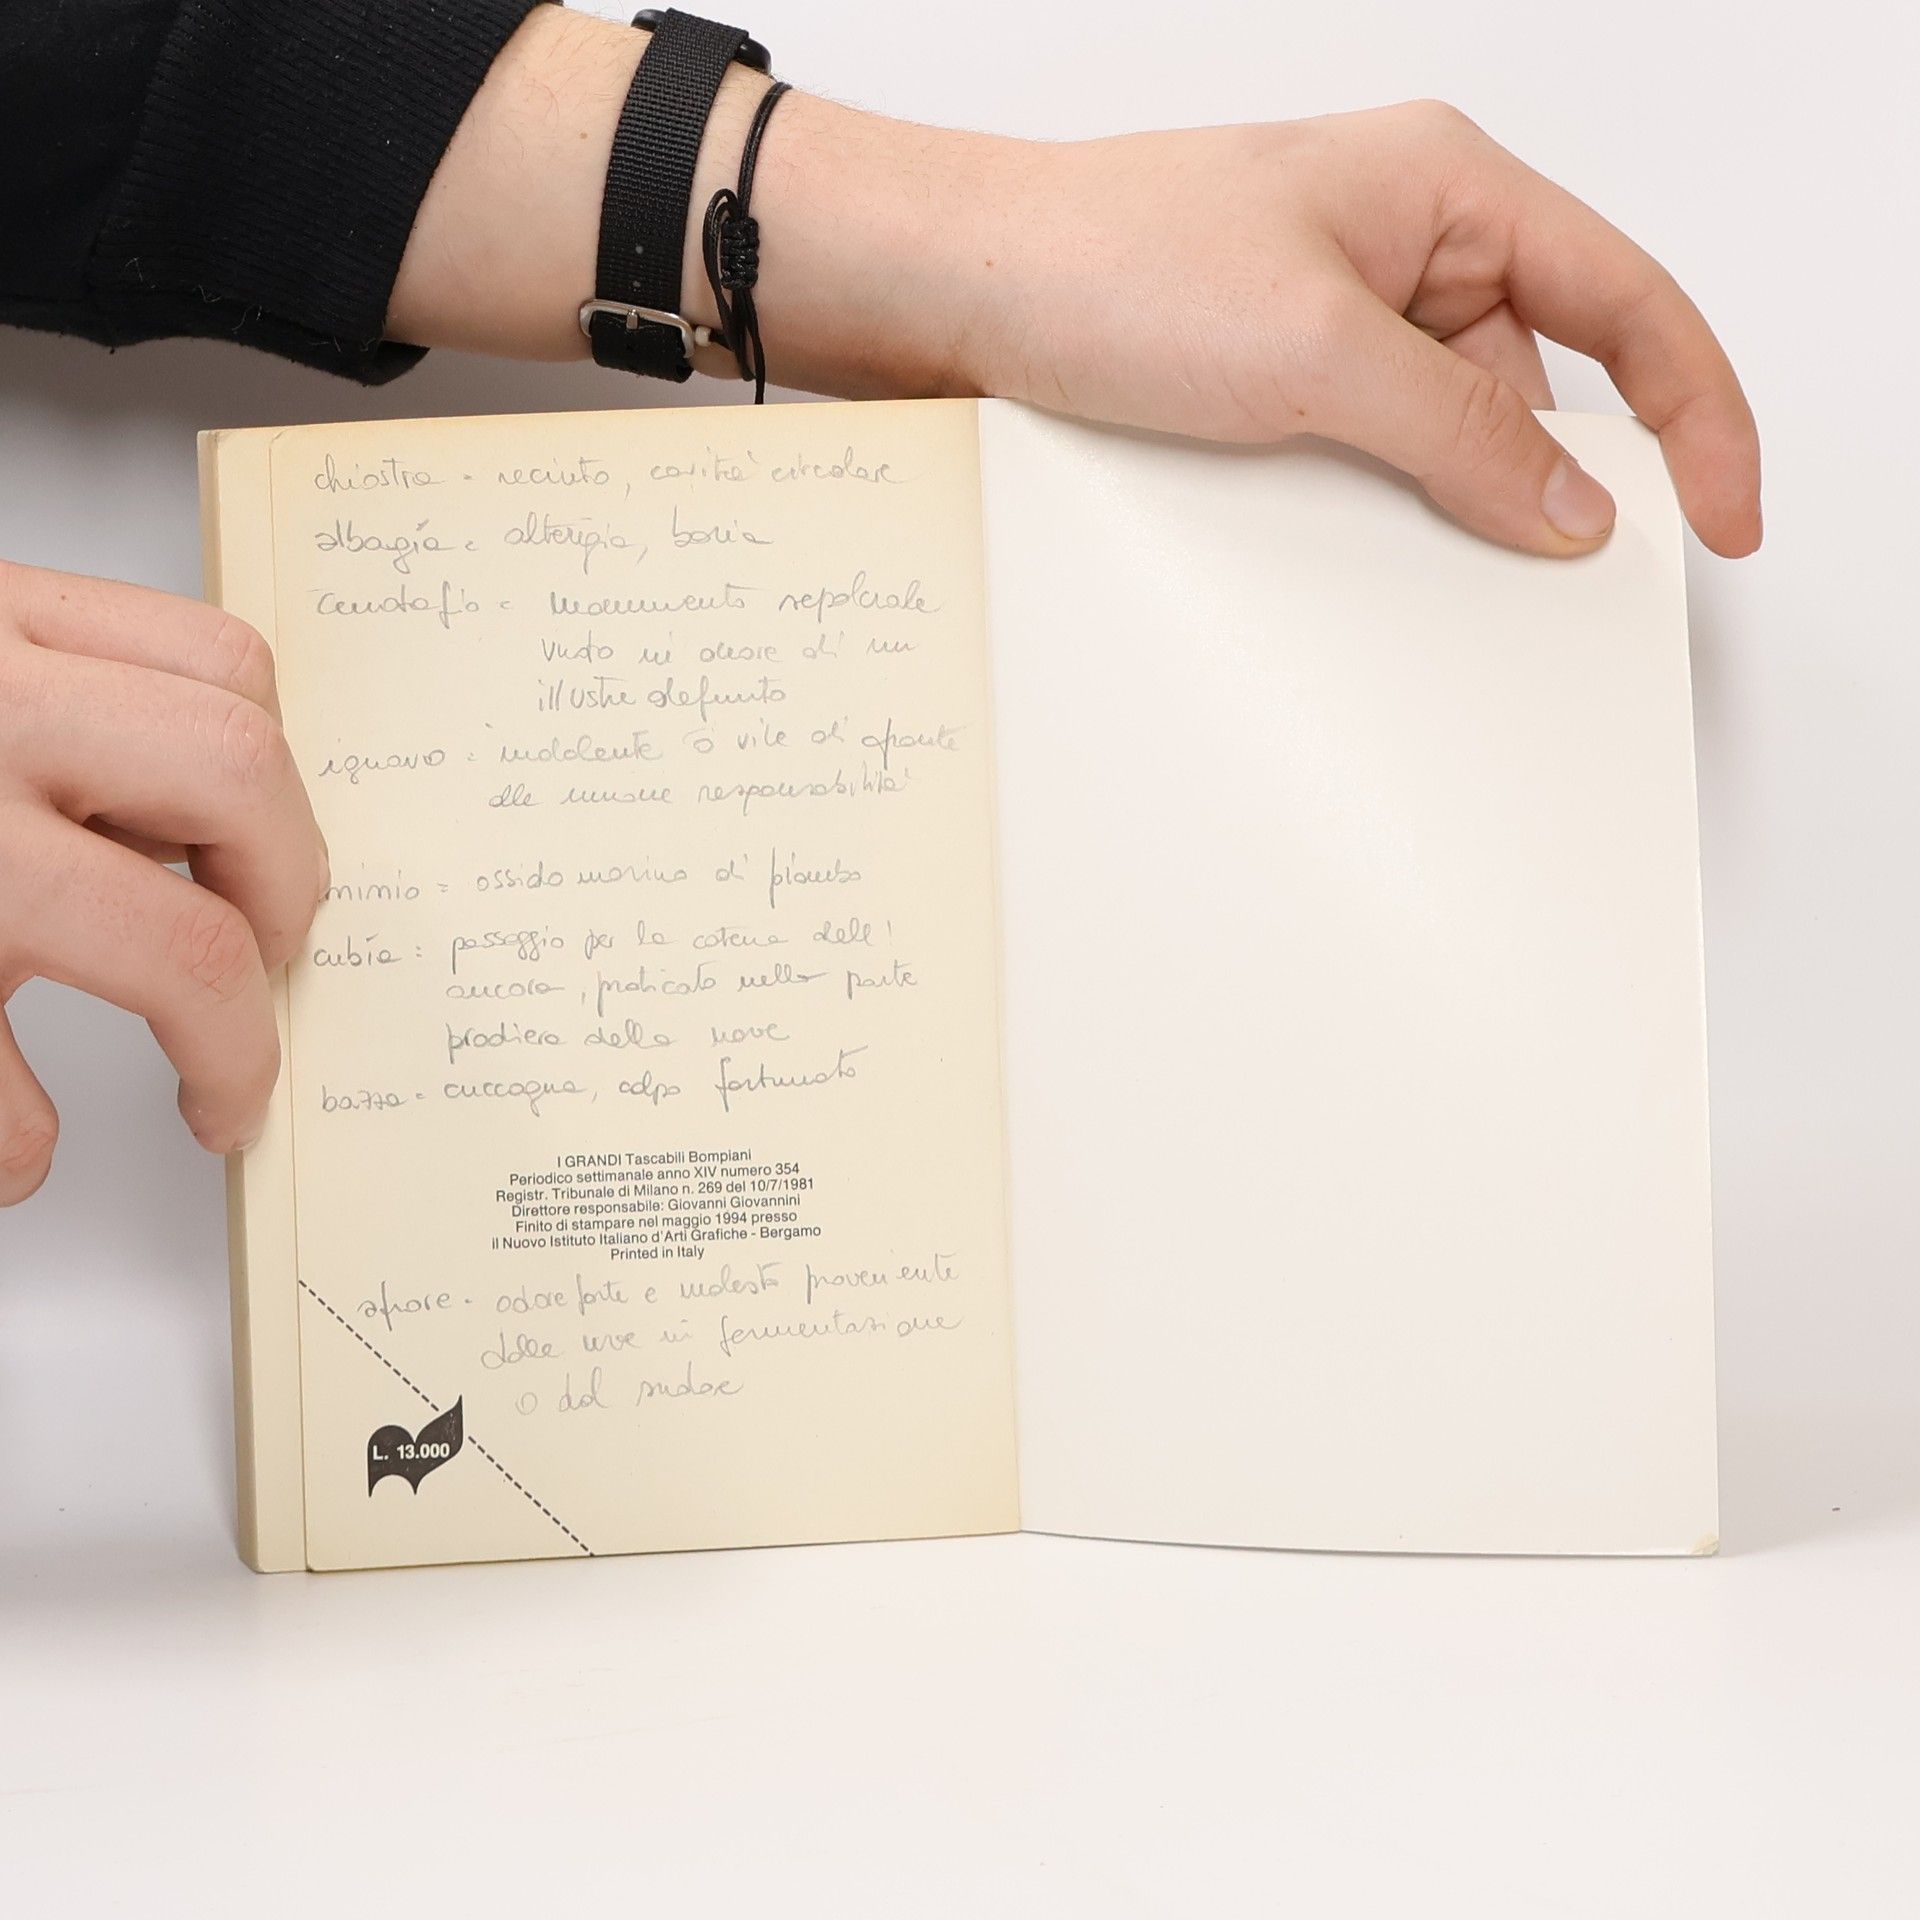 chiostra = recinto, cavità circolare
albagìa = alterigia, boria
cenotafio = monumento sepolcrale
vuoto in onore di un
illustre defunto
ignavo = indolente o vile di fronte
alle umane responsabilità
minio = ossido di piombo
cubìa = passaggio per la catena dell'
ancora, praticato nella parte
prodiera della nave
bazza = cuccagna, colpo fortunato
I GRANDI Tascabili Bompiani
Periodico settimanale anno XIV numero 354
Registr. Tribunale di Milano n. 269 del 10/7/1981
Direttore responsabile: Giovanni Giovannini
Finito di stampare nel maggio 1994 presso
il Nuovo Istituto Italiano d'Arti Grafiche - Bergamo
Printed in Italy
afrore = odore forte e molesto proveniente
dalle uve in fermentazione
o dal sudore
L. 13.000